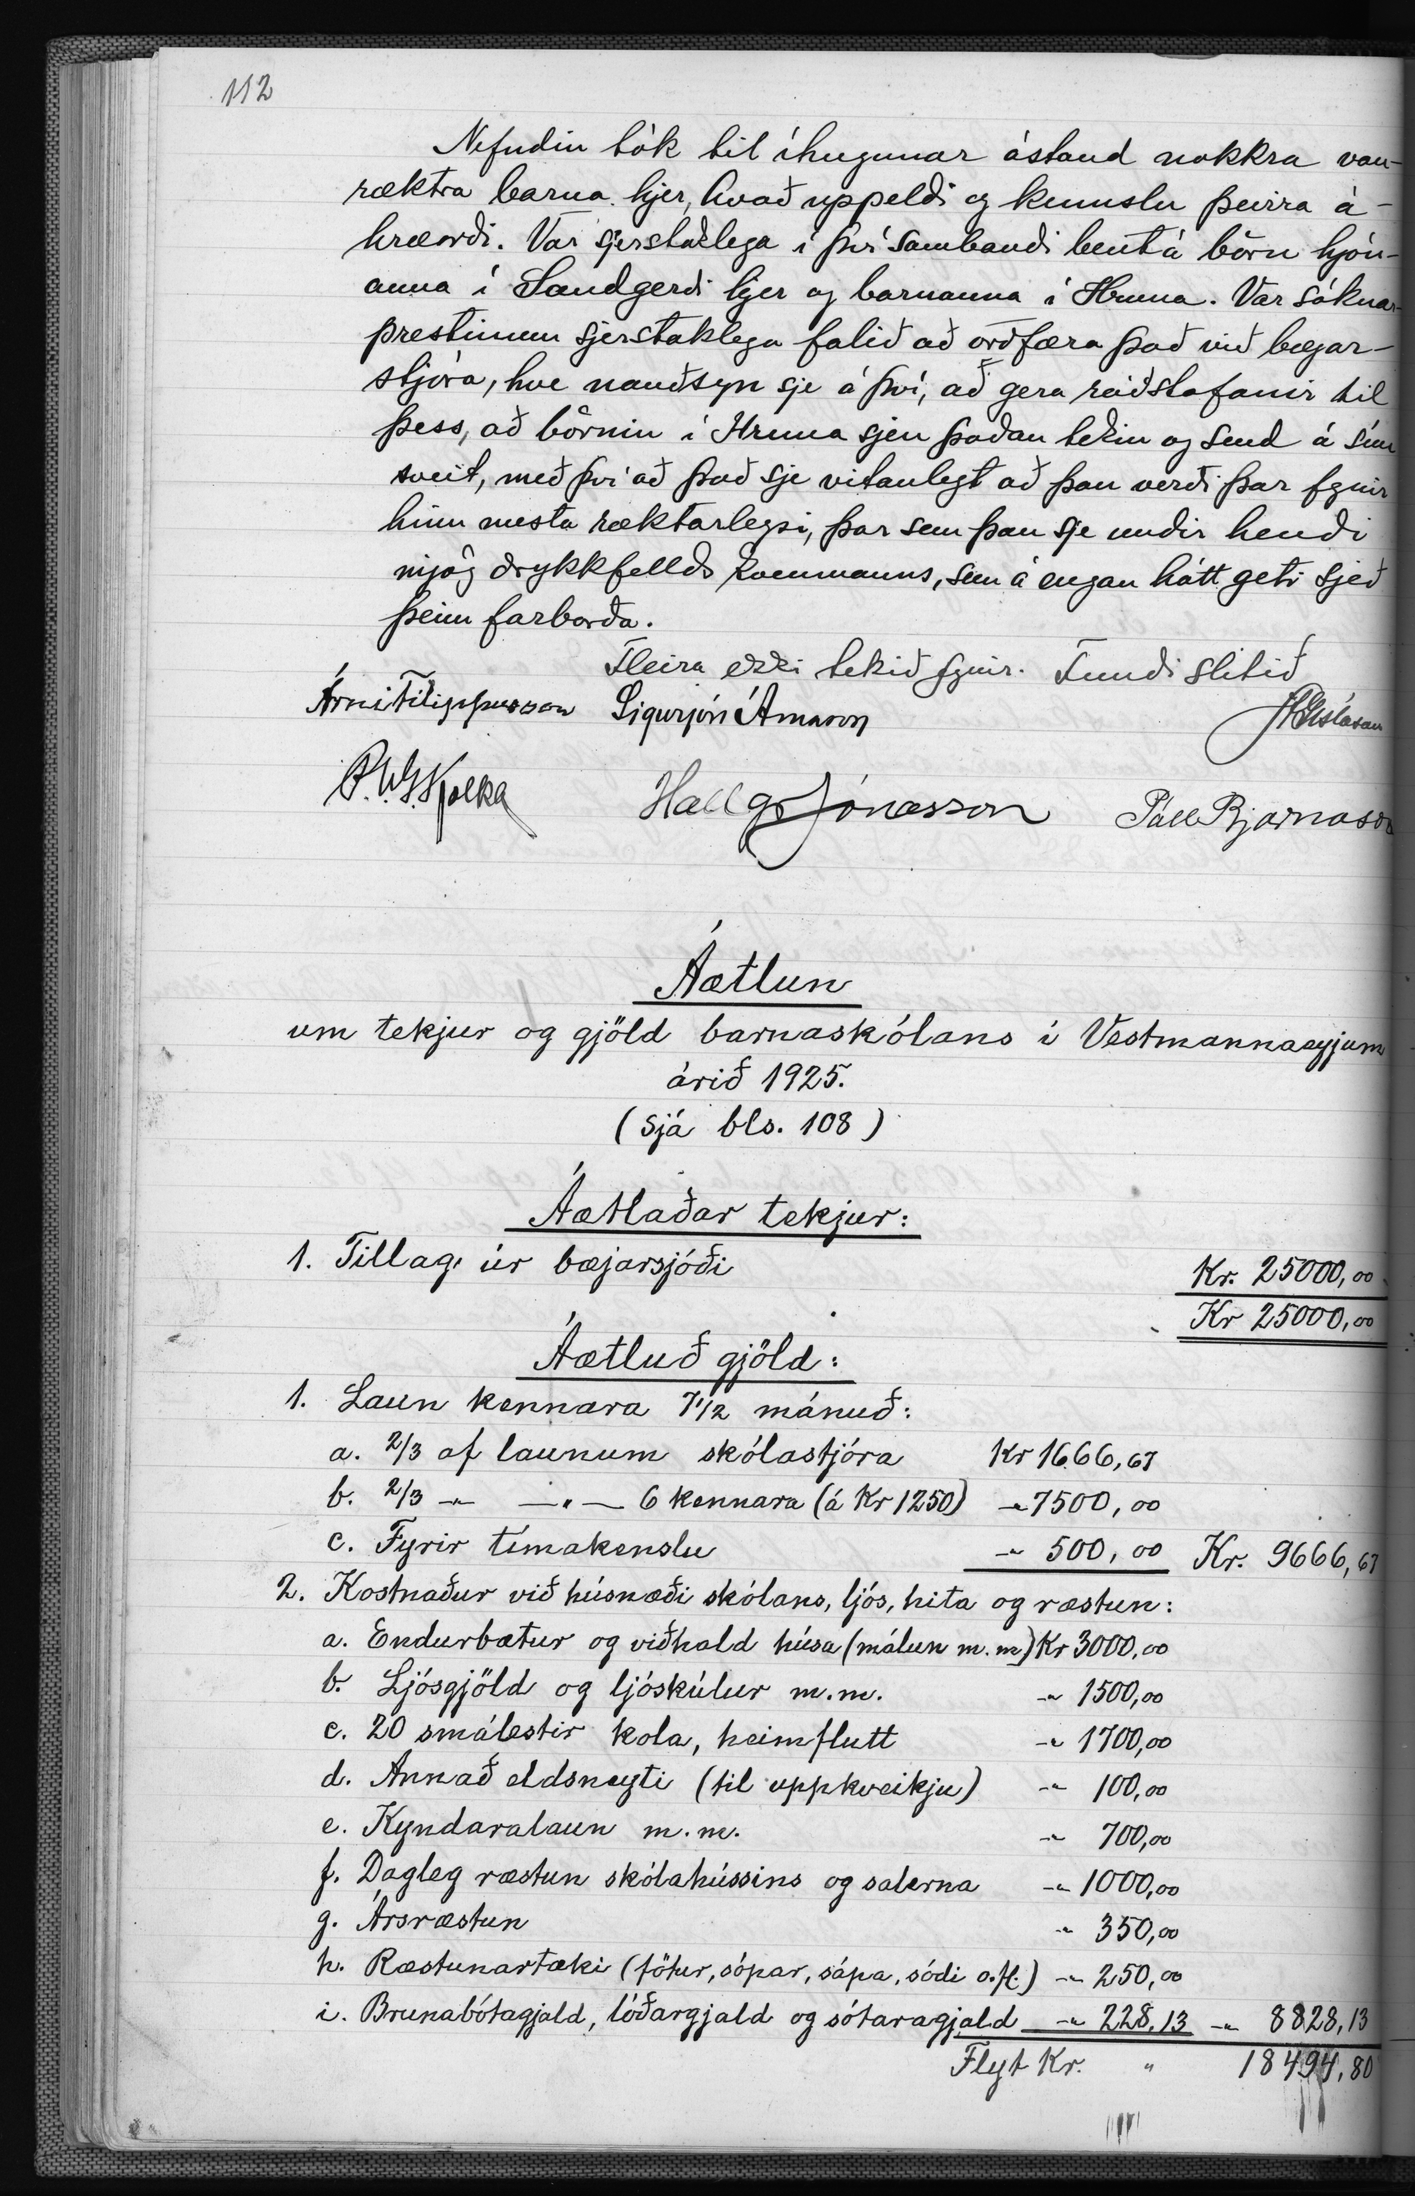 112
Nefndin tók til íhugunar ástand nokkra van-
ræktra barna hjer, hvað uppeldi og kennslu þeirra á-
hrærði. Var sjerstaklega í því sambandi bent á börn hjón-
anna í Sandgerði hjer og barnanna í Hruna. Var sóknar-
prestinum sjerstaklega falið að orðfæra það við bæjar-
stjóra, hve nauðsyn sje á því, að gera ráðstafanir til
þess, að börnin í Hruna sjeu þaðan tekin og send á sína
sveit, með því að það sje vitanlegt að þau verði þar fyrir
hinu mesta ræktarleysi, þar sem þau sje undir hendi
mjög drykkfellds kvenmanns, sem á engan hátt geti sjeð
þeim farborða.
Fleira ekki tekið fyrir. Fundi slitið
Árni Filippusson Sigurjón Árnason J Gíslason
P.V.G. Kolka Hallgr Jónasson Páll Bjarnason
Áætlun
um tekjur og gjöld barnaskólans í Vestmannaeyjum
árið 1925.
(sjá bls. 108)
Áætlaðar tekjur:
1. Tillag úr bæjarsjóði Kr. 25000,00
Kr 25000,00
Áætluð gjöld:
1. Laun kennara 7½ mánuð:
a. 2/3 af launum skólastjóra Kr 1666,67
b. 2/3 -"- -"- 6 kennara (á Kr 1250) -"- 7500,00
c. Fyrir tímakenslu -"- 500,00 Kr. 9666,67
2. Kostnaður við húsnæði skólans, ljós, hita og ræstun:
a. Endurbætur og viðhald húsa (málun m.m) Kr 3000,00
b. Ljósgjöld og ljóskúlur m.m. -"- 1500,00
c. 20 smálestir kola, heimflutt -"- 1700,00
d. Annað eldsneyti (til uppkveikju) -"- 100,00
e. Kyndaralaun m.m. -"- 700,00
f. Dagleg ræstun skólahússins og salerna -"- 1000,00
g. Ársræstun " 350,00
h. Ræstunartæki (fötur, sópar, sápa, sódi o.fl.) -"- 250,00
i. Brunabótagjald, lóðargjald og sótaragjald -"- 228,13 -"- 8828,13
Flyt Kr. " 18494,80